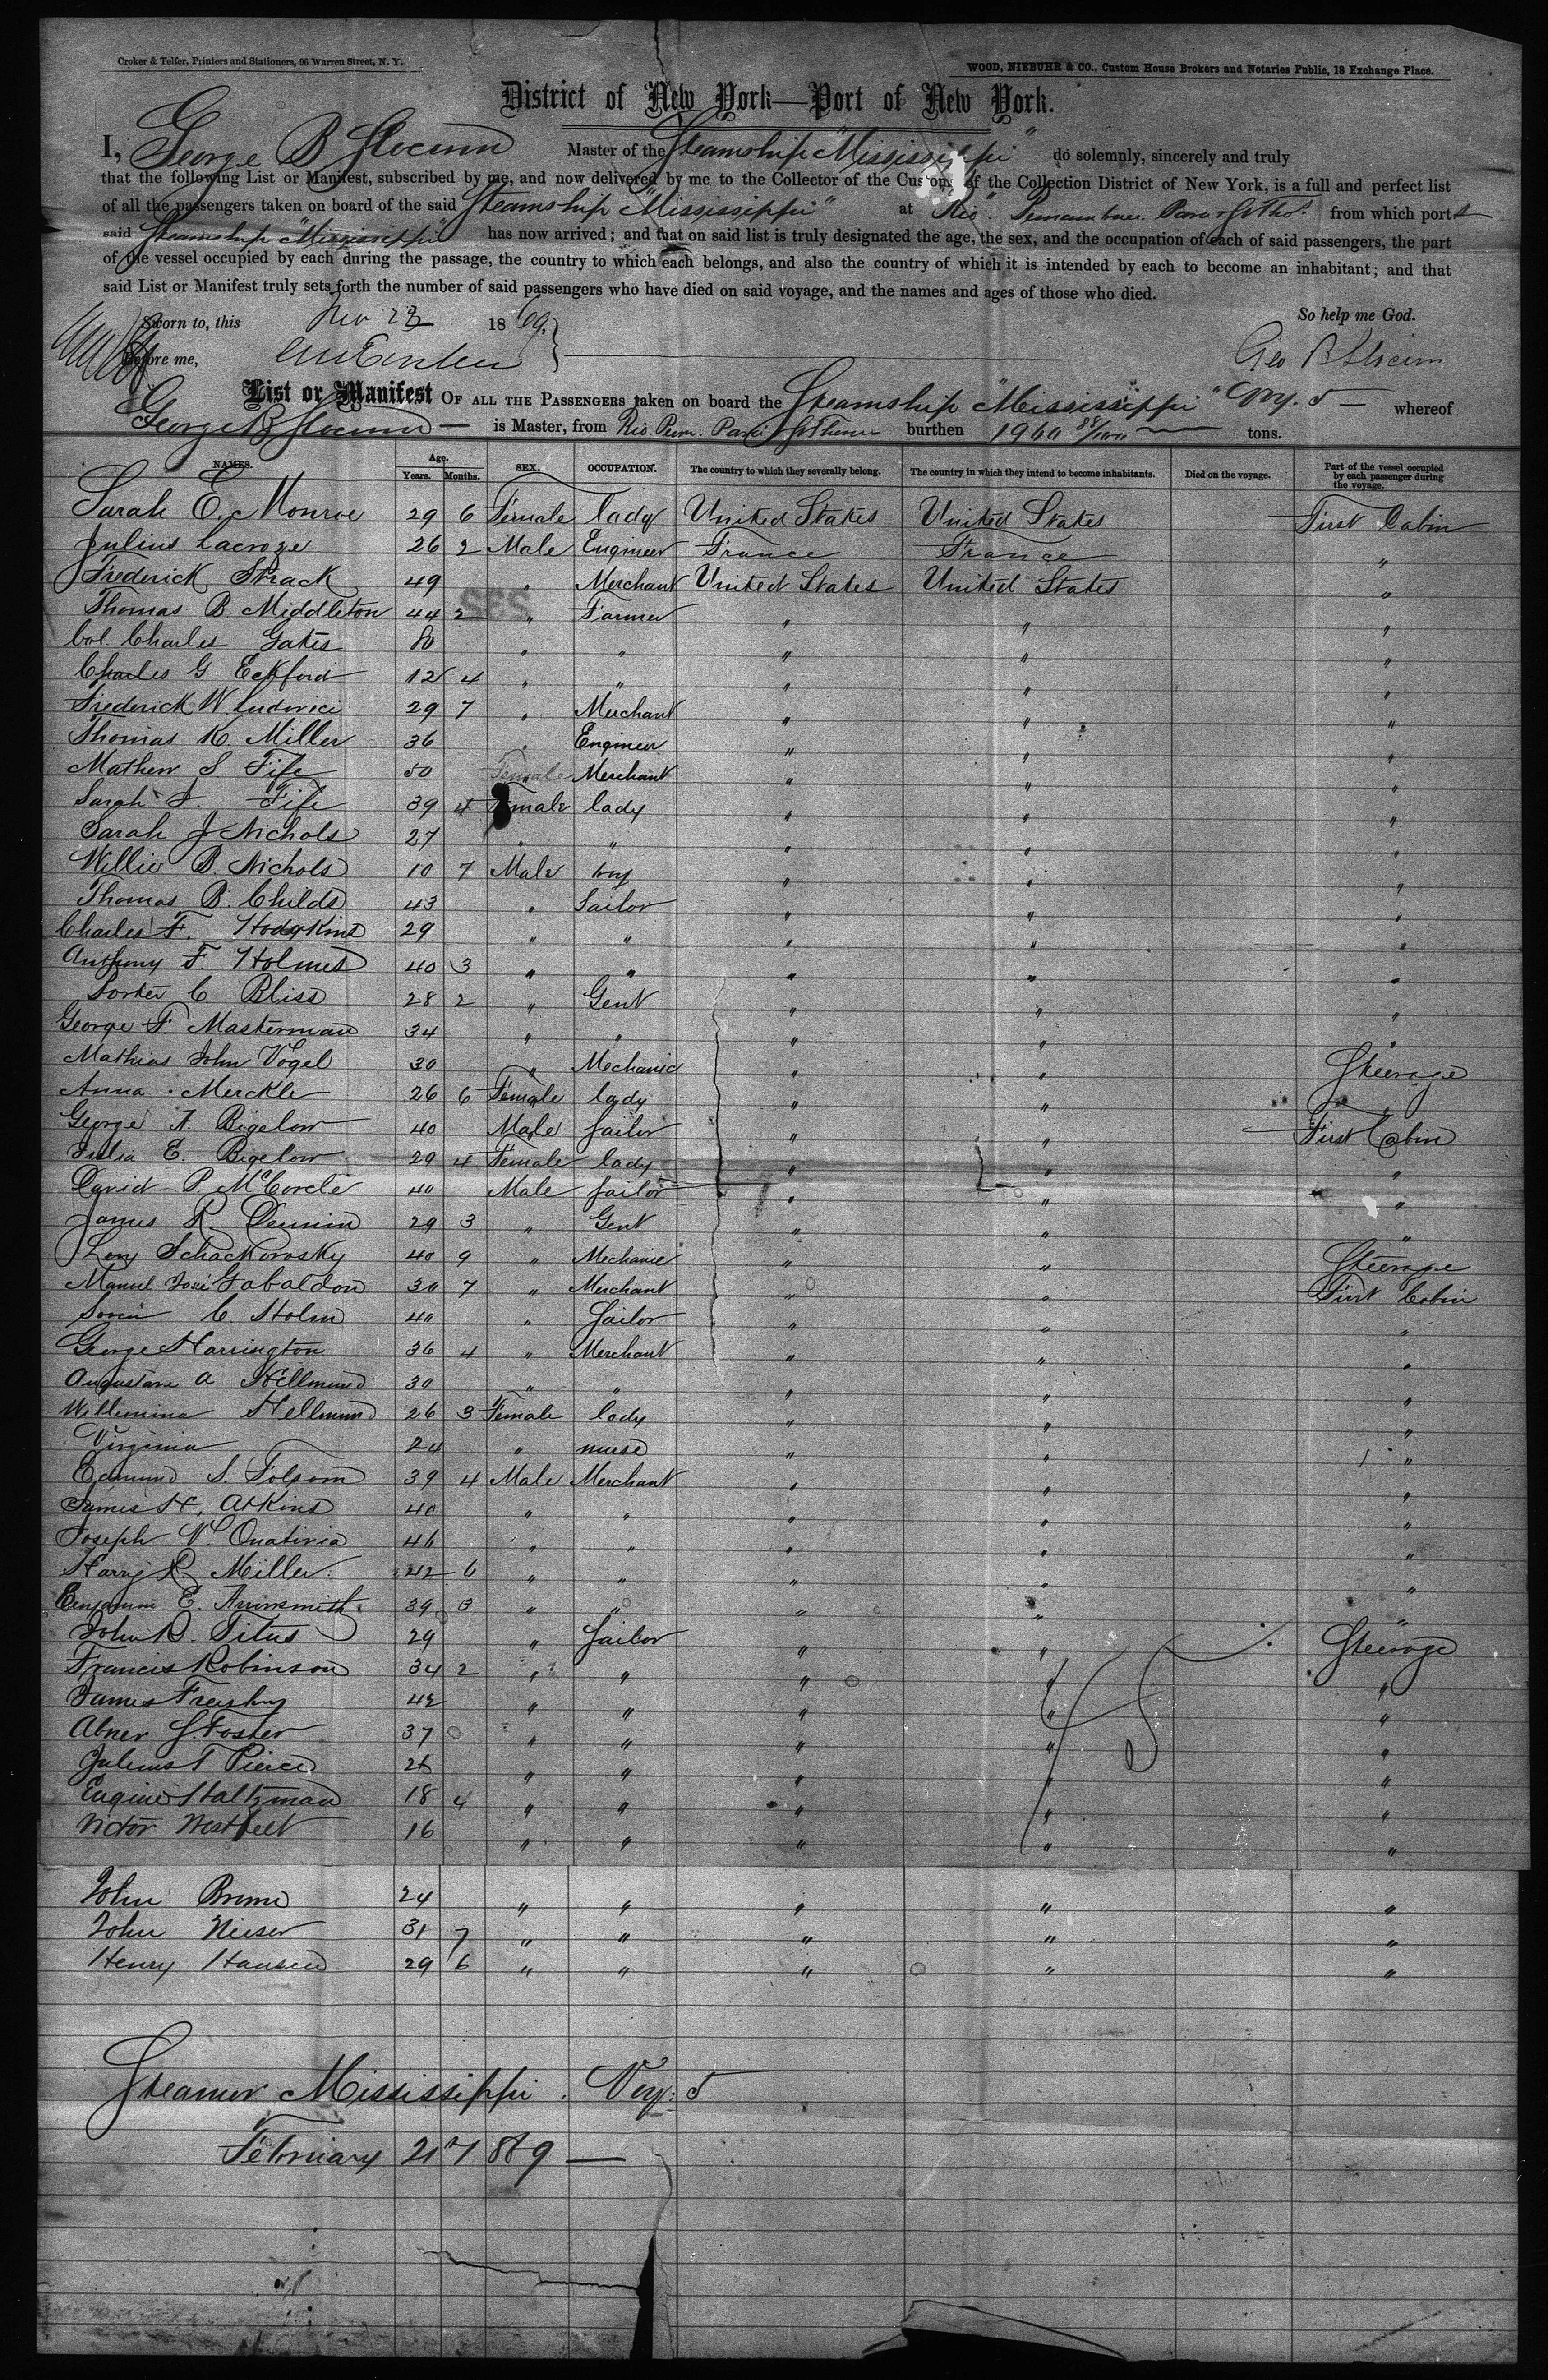 Croker & Telfer, Printers and Stationers, 96 Warren Street, N. Y.
WOOD, NIEBUHR & CO., Custom House Brokers and Notaries Public, 18 Exchange Place.
District of New York—Port of New York.
I, George B Slocum Master of the Steamship "Mississippi" do solemnly, sincerely and truly
that the following List or Manifest, subscribed by me, and now delivered by me to the Collector of the Customs of the Collection District of New York, is a full and perfect list
of all the passengers taken on board of the said Steamship "Mississippi" at Rio. Pernambuco. Para & St Thos. from which ports
said Steamship "Mississippi" has now arrived; and that on said list is truly designated the age, the sex, and the occupation of each of said passengers, the part
of the vessel occupied by each during the passage, the country to which each belongs, and also the country of which it is intended by each to become an inhabitant; and that
said List or Manifest truly sets forth the number of said passengers who have died on said voyage, and the names and ages of those who died.
Sworn to, this 23 1869. So help me God.
Before me, Geo B Slocum
List or Manifest OF ALL THE PASSENGERS taken on board the Steamship "Mississippi" Voy. 5 — whereof
George B Slocum — is Master, from Rio. Pern. Para & St Thomas burthen 1960 88/100 tons.
NAMES. Age. Years. Months. SEX. OCCUPATION. The country to which they severally belong. The country in which they intend to become inhabitants. Died on the voyage. Part of the vessel occupied by each passenger during the voyage.
Sarah E. Monroe 29 6 Female lady United States United States First Cabin
Julius Lacroze 26 2 Male Engineer France France "
Frederick Strack 49 " Merchant United States United States "
Thomas B. Middleton 44 2 " Farmer " " "
Col. Charles Gates 80 " " " " "
Charles G Eckford 12 4 " " " " "
Frederick W. Ludovici 29 7 " Merchant " " "
Thomas K Miller 36 " Engineer " " "
Mathew S Fife 50 Female Merchant " " "
Sarah J. Fife 39 4 Female lady " " "
Sarah J Nichols 27 " " " " "
Willie B. Nichols 10 7 Male boy " " "
Thomas B. Childs 43 " Sailor " " "
Charles F. Hodgkins 29 " " " " "
Anthony F Holmes 40 3 " " " " "
Porter C Bliss 28 2 " Gent " " "
George F. Masterman 34 " " " " "
Mathias John Vogel 30 " Mechanic " " Steerage
Anna Merckle 26 6 Female lady " " "
George A. Bigelow 40 Male Sailor " " First Cabin
Julia E. Bigelow 29 4 Female lady " " "
David P. McCorcle 40 Male Sailor " " "
James R. 29 3 " Gent " " "
Schackovosky 40 9 " Mechanic " " Steerage
Manuel Jose Gabaldon 30 7 " Merchant " " First Cabin
C Holm 40 " Sailor " " "
George Harrington 36 4 " Merchant " " "
A Hellmund 30 " " " " "
Willemina Hellmund 26 3 Female lady " " "
Virginia 24 " nurse " " "
Edmund S. Folsom 39 4 Male Merchant " " "
James H. Atkins 40 " " " " "
Joseph V. Onativia 46 " " " " "
Harry R Miller 42 6 " " " " "
Benjamin E. Arrinsmith 39 3 " " " " "
John R. Titus 29 " Sailor " " Steerage
Francis Robinson 34 2 " " " " "
James 42 " " " " "
Abner J. Foster 37 " " " " "
Julius T Pierce " " " " "
Eugine Haltzman 18 4 " " " " "
Victor Westfeelt 16 " " " " "
John 24 " " " " "
John Nieser 31 7 " " " " "
Henry Hansen 29 6 " " " " "
Steamer Mississippi. Voy: 5
February 21st 1869 —